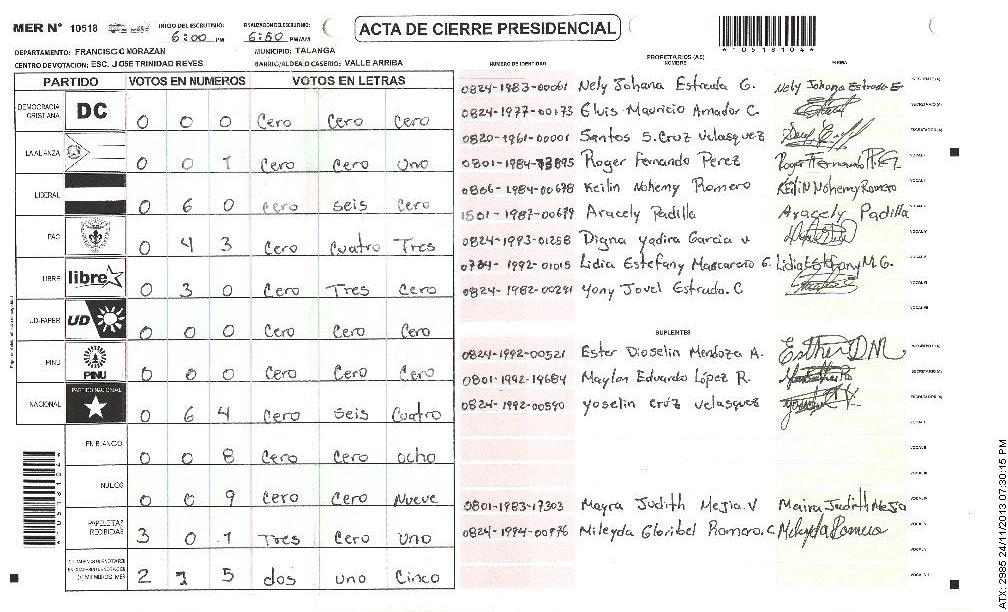 MER N° 10518
INICIO DEL ESCRUTINIO: 6:00 PM
FINALIZACION DEL ESCRUTINIO: 6:50 PM/AM
ACTA DE CIERRE PRESIDENCIAL
*051814*
DEPARTAMENTO: FRANCISCO MORAZAN
MUNICIPIO: TALANGA
CENTRO DE VOTACION: ESC. JOSE TRINIDAD REYES
BARRIO/ALDEA O CASERIO: VALLE ARRIBA
PARTIDO VOTOS EN NUMEROS VOTOS EN LETRAS
DEMOCRACIA CRISTIANA DC 0 0 0 Cero Cero Cero
LA ALIANZA 0 0 1 Cero Cero Uno
LIBERAL 0 6 0 Cero Seis Cero
PAC 0 4 3 Cero Cuatro Tres
LIBRE libre 0 3 0 Cero Tres Cero
UD-FAPER UD 0 0 0 Cero Cero Cero
PINU PINU 0 0 0 Cero Cero Cero
NACIONAL PARTIDO NACIONAL 0 6 4 Cero Seis Cuatro
EN BLANCO 0 0 8 Cero Cero ocho
NULOS 0 0 9 Cero Cero Nueve
PAPELETAS RECIBIDAS 3 0 1 Tres Cero Uno
2 1 5 dos uno Cinco
PROPIETARIOS (AS)
NUMERO DE IDENTIDAD NOMBRE FIRMA
0824-1983-00061 Nely Johana Estrada G. Nely Johana Estrada G
0824-1977-00173 Elvis Mauricio Amador C.
0820-1961-00001 Santos S. Cruz Velasquez
0801-1984- Roger Fernando Perez
0806-1984-00678 Keilin Nohemy Romero Keilin Nohemy Romero
1501-1987-00679 Aracely Padilla Aracely Padilla
0824-1993-01258 Digna Yadira Garcia V
1992-01015 Lidia Estefany Mascareño G. Lidia Estefany M.G.
0824-1982-00291 Yony Jovel Estrada. C
SUPLENTES
0824-1992-00521 Ester Dioselin Mendoza A. Esther DM
0801-1992-19684 Maylon Eduardo López R.
0824-1992-00590 Yoselin Cruz Velasquez
0801-1983-17303 Mayra Judith Mejia. V Maira Judith Mejia
0824-1994-00976 Mileyda Gloribel Romero. C Mileyda Romero
ATX: 2985 24/11/2013 07:30:15 PM